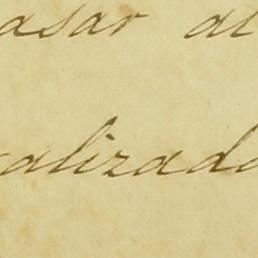 asar al
alizado